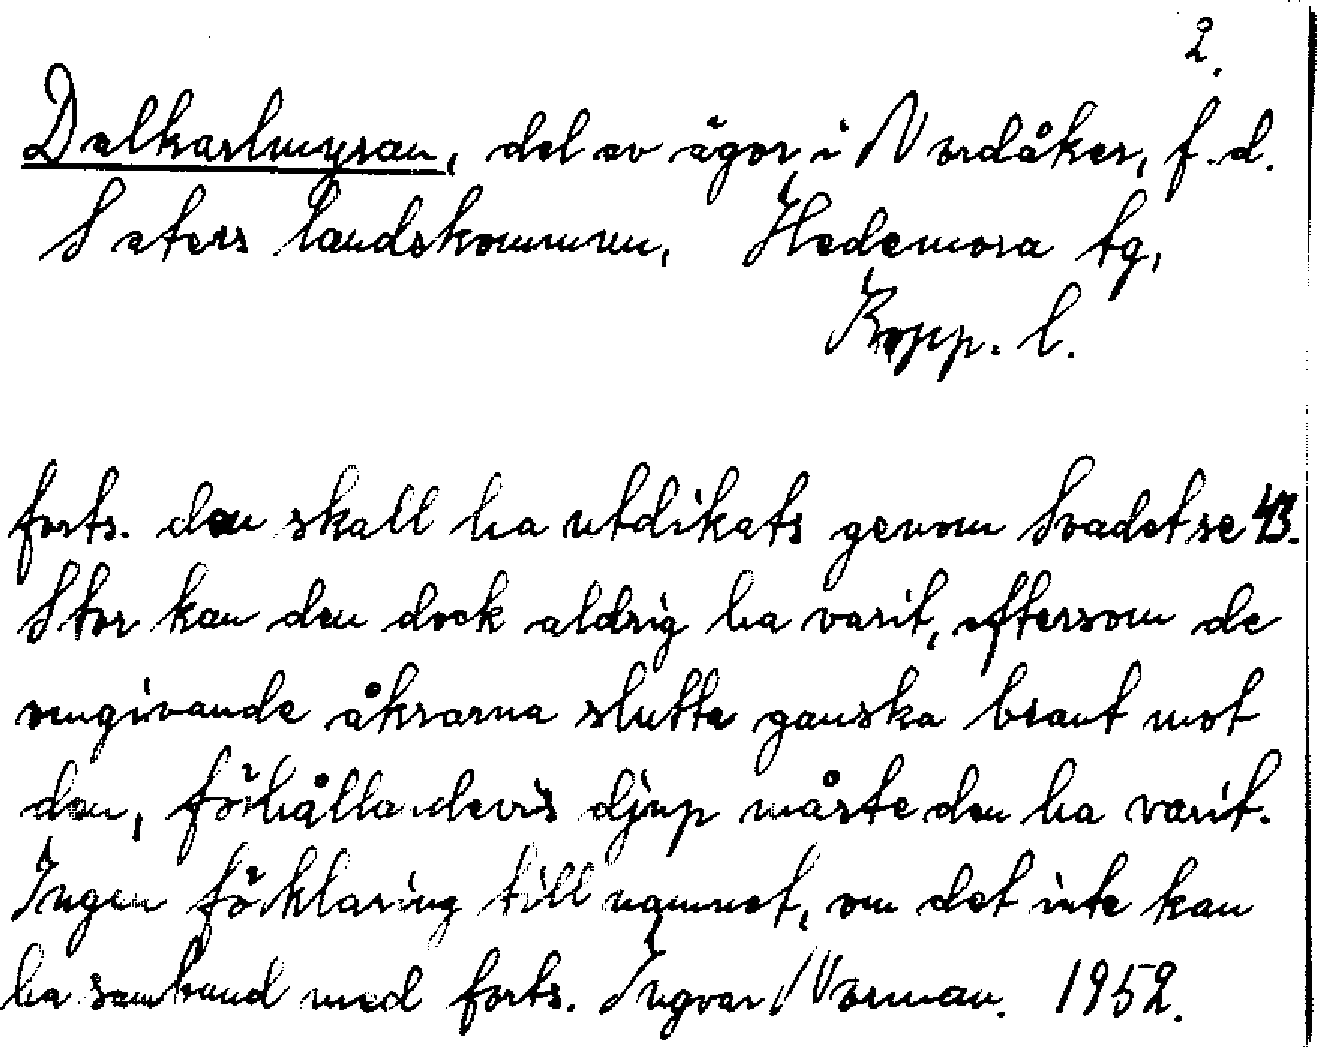 2.
Dalkarlmyran, del av ägor i Nordåker, f.d.
Säters landskommun, Hedemora tg,
Kopp. l.
forts. den skall ha utdikats genom Svadet se 43.
Stor kan den dock aldrig ha varit, eftersom de
omgivande åkrarna slutta ganska brant mot
den, förhållandevis djup måste den ha varit.
Ingen förklaring till namnet, om det inte kan
ha samband med forts. Ingvar Norman. 1952.